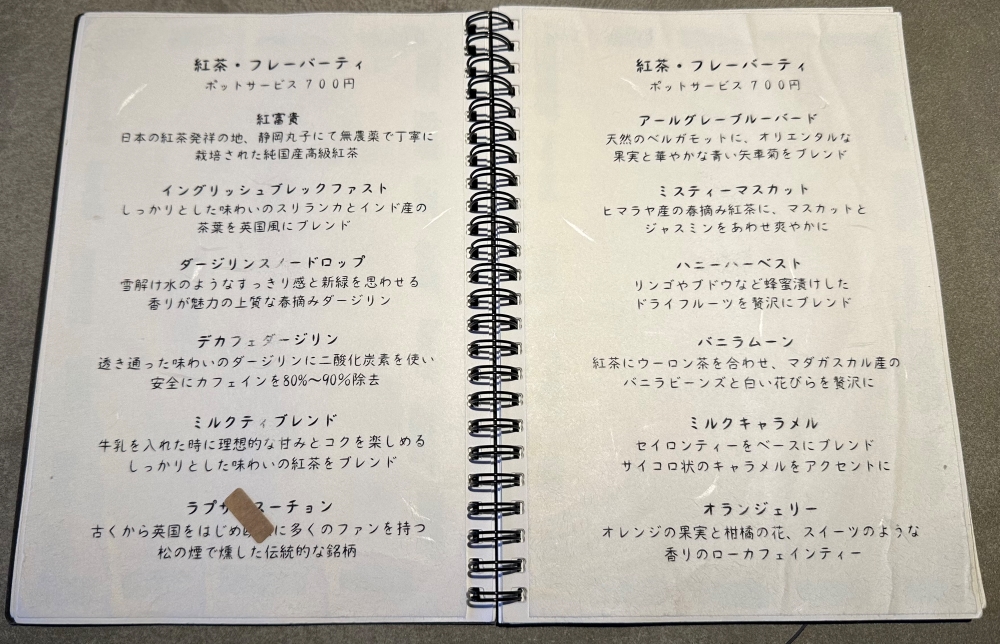 紅茶・フレーバーティ
ポットサービス 700円
紅富貴
日本の紅茶発祥の地、静岡丸子にて無農薬で丁寧に
栽培された純国産高級紅茶
イングリッシュブレックファスト
しっかりとした味わいのスリランカとインド産の
茶葉を英国風にブレンド
ダージリンスノードロップ
雪解け水のようなすっきり感と新緑を思わせる
香りが魅力の上質な春摘みダージリン
デカフェダージリン
透き通った味わいのダージリンに二酸化炭素を使い
安全にカフェインを80%～90%除去
ミルクティブレンド
牛乳を入れた時に理想的な甘みとコクを楽しめる
しっかりとした味わいの紅茶をブレンド
ラプサ スーチョン
古くから英国をはじめ に多くのファンを持つ
松の煙で燻した伝統的な銘柄
紅茶・フレーバーティ
ポットサービス 700円
アールグレーブルーバード
天然のベルガモットに、オリエンタルな
果実と華やかな青い矢車菊をブレンド
ミスティーマスカット
ヒマラヤ産の春摘み紅茶に、マスカットと
ジャスミンをあわせ爽やかに
ハニーハーベスト
リンゴやブドウなど蜂蜜漬けした
ドライフルーツを贅沢にブレンド
バニラムーン
紅茶にウーロン茶を合わせ、マダガスカル産の
バニラビーンズと白い花びらを贅沢に
ミルクキャラメル
セイロンティーをベースにブレンド
サイコロ状のキャラメルをアクセントに
オランジェリー
オレンジの果実と柑橘の花、スイーツのような
香りのローカフェインティー